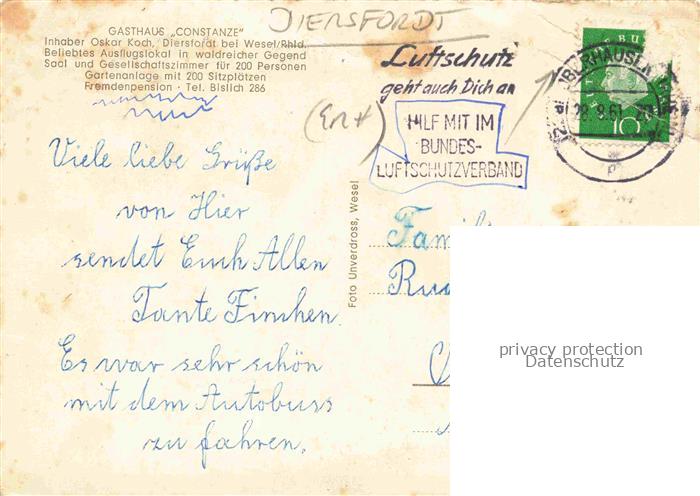 DIERSFORDT
GASTHAUS „CONSTANZE"
Inhaber Oskar Koch, Diersfordt bei Wesel/Rhld.
Beliebtes Ausflugslokal in waldreicher Gegend
Saal und Gesellschaftszimmer für 200 Personen
Gartenanlage mit 200 Sitzplätzen
Fremdenpension · Tel. Bislich 286
Viele liebe Grüße
von Hier
sendet Euch Allen
Tante Finchen.
Es war sehr schön
mit dem Autobuss
zu fahren.
Foto Unverdross, Wesel
Luftschutz
geht auch Dich an
HILF MIT IM
BUNDES-
LUFTSCHUTZVERBAND
OBERHAUSEN
28.8.61
10
privacy protection
Datenschutz